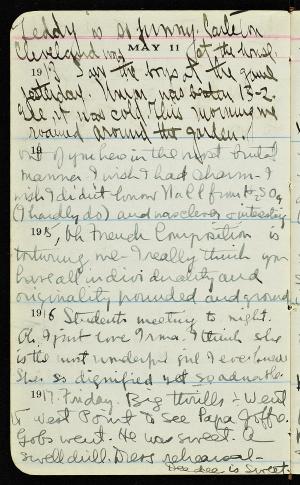 Teddy is so funny. Carleton
Cleveland was at the house.
MAY 11
1913 Saw the boys at the game
yesterday. Union was beaten 13-2.
it was cold. This morning we
roamed around the garden.
19
out of you here in the most brutal
manner. I wish I had charm - I
wish I didn't know Nall from H2SO4
(I hardly do) and was clever & interesting
1915, Oh French Composition is
torturing me - I really think you
have all individuality and
originality pounded and ground
1916 Students meeting to night.
Oh, I just love Irma. I think she
is the most wonderful girl I ever knew
She's so dignified yet so adorable.
1917. Friday. Big thrills - Went
to West Point to see Papa Joffre.
Gobs went. He was sweet. A
swell drill. Dress rehearsal -
is Sweet.